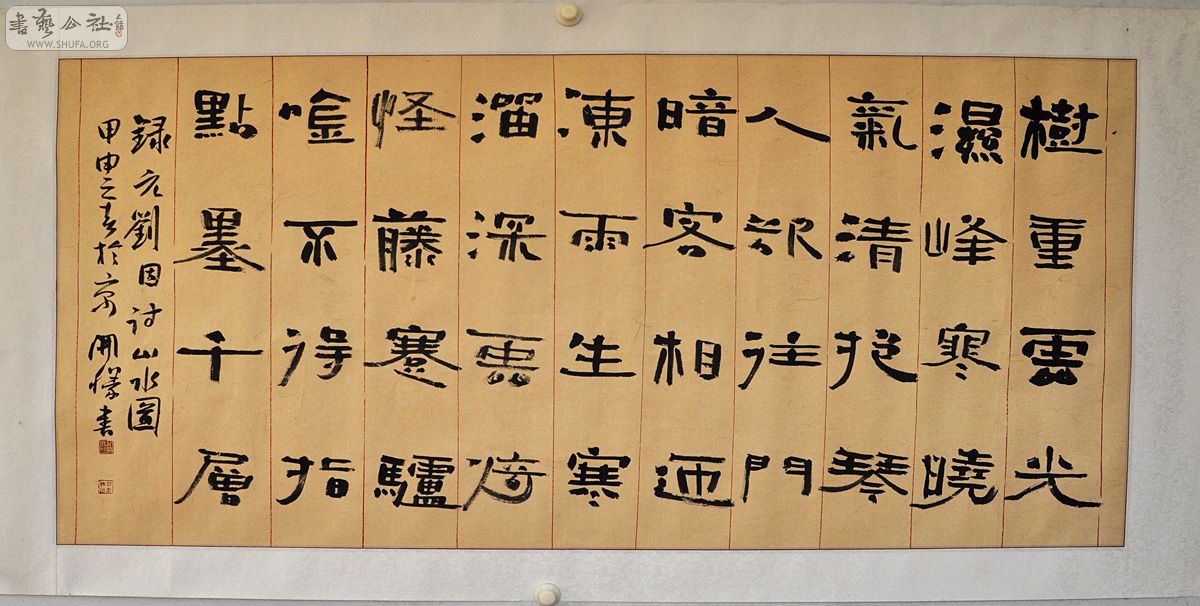 樹重雲光
濕峰寒曉
氣清抱琴
人欲往門
暗客相迎
凍雨生寒
溜深雲倚
怪藤蹇驢
唫不得指
點墨千層
錄元劉因詩山水圖
甲申之春於京 開書
書藝公社
WWW.SHUFA.ORG